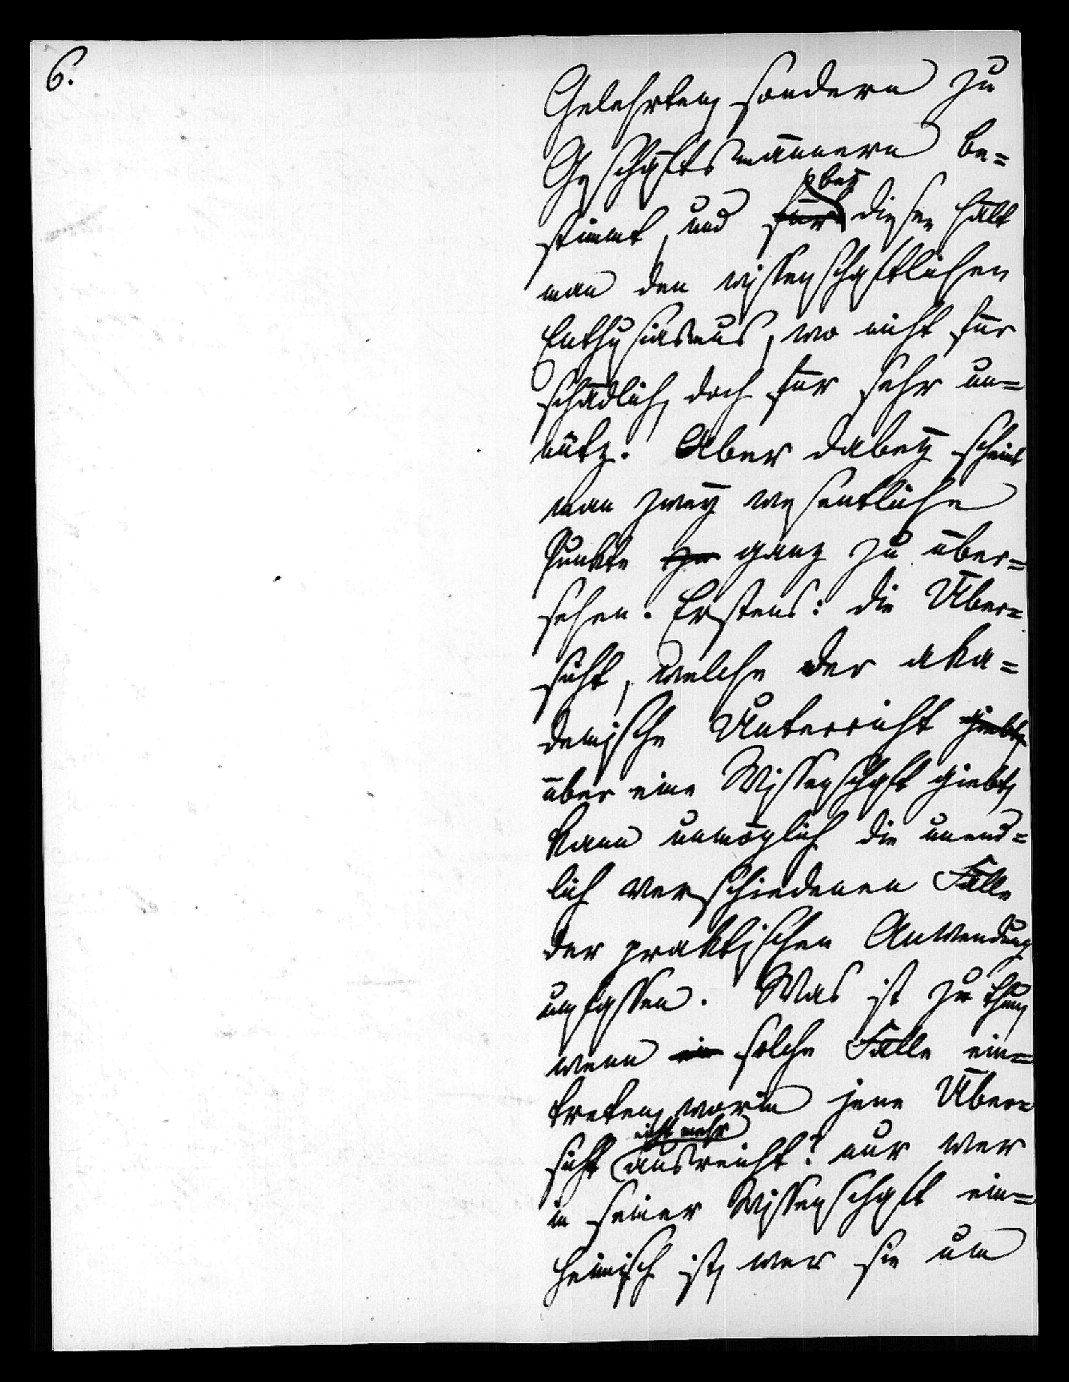 6.
Gelehrten, sondern zu
Geschäftsmännern be=
bey
stimmt, und für diese hält
man den wissenschaftlichen
Enthusiasmus, wo nicht für
schädlich, doch für sehr un=
nütz. Aber dabey scheint
man zwey wesentliche
Punkte zu ganz zu über=
sehen. Erstens: die Über=
sicht, welche der aka=
demische Unterricht giebt,
über eine Wissenschaft giebt,
kann unmöglich die unend=
lich verschiedenen Fälle
der praktischen Anwendung
umfassen. Was ist zu thun,
wenn ein solche Fälle ein=
treten, worin jene Über=
nicht mehr
sicht ausreicht? nur wer
in seiner Wissenschaft ein=
heimisch ist, wer sie um